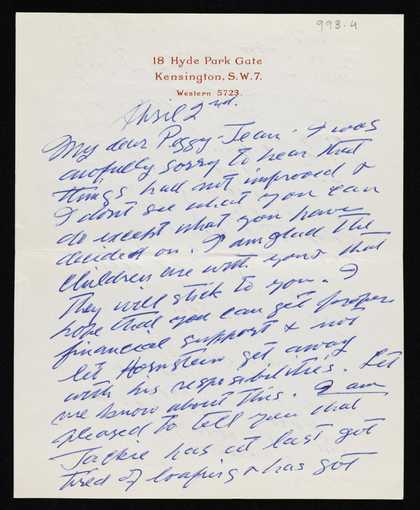 993.4
18 Hyde Park Gate
Kensington. S.W.7.
Western 5723.
April 2nd.
My dear Peggy-Jean. I was
awfully sorry to hear that
things had not improved &
I don't see what you can
do except what you have
decided on. I am glad the
children are with you & that
they will stick to you. I
hope that you can get proper
financial support & not
let Hornstein get away
with his responsibilities. Let
me know about this. I am
pleased to tell you that
Jackie has at last got
tired of loafing & has got